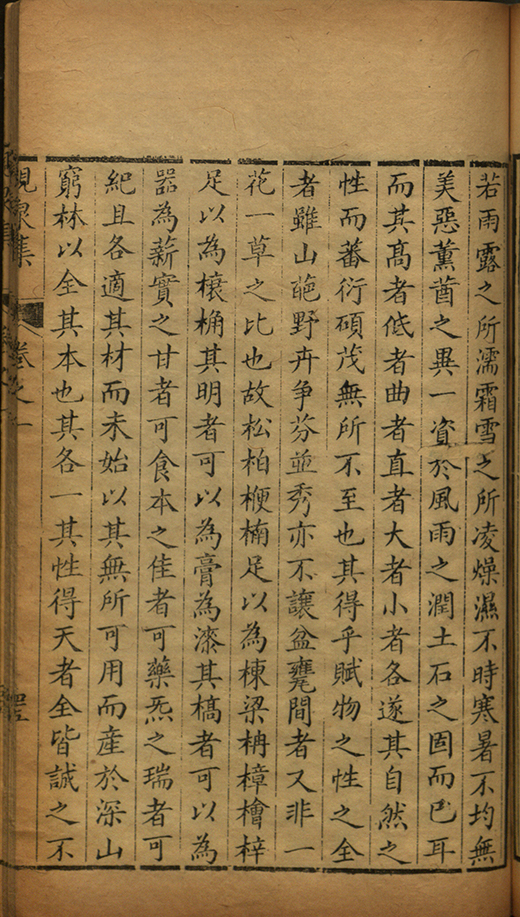 若雨露之所濡霜雪之所凌燥濕不時寒暑不均無
美惡薰蕕之異一資於風雨之潤土石之固而已耳
而其髙者低者曲者直者大者小者各遂其自然之
性而蕃衍碩茂無所不至也其得乎賦物之性之全
者雖山葩野卉争芬並秀亦不讓盆甕間者又非一
花一草之比也故松柏楩楠足以為棟梁柟樟檜梓
足以為榱桷其明者可以為膏為漆其槁者可以為
器為薪實之甘者可食本之佳者可藥炁之瑞者可
紀且各適其材而未始以其無所可用而産於深山
窮林以全其本也其各一其性得天者全皆誠之不
峴泉集
卷之一